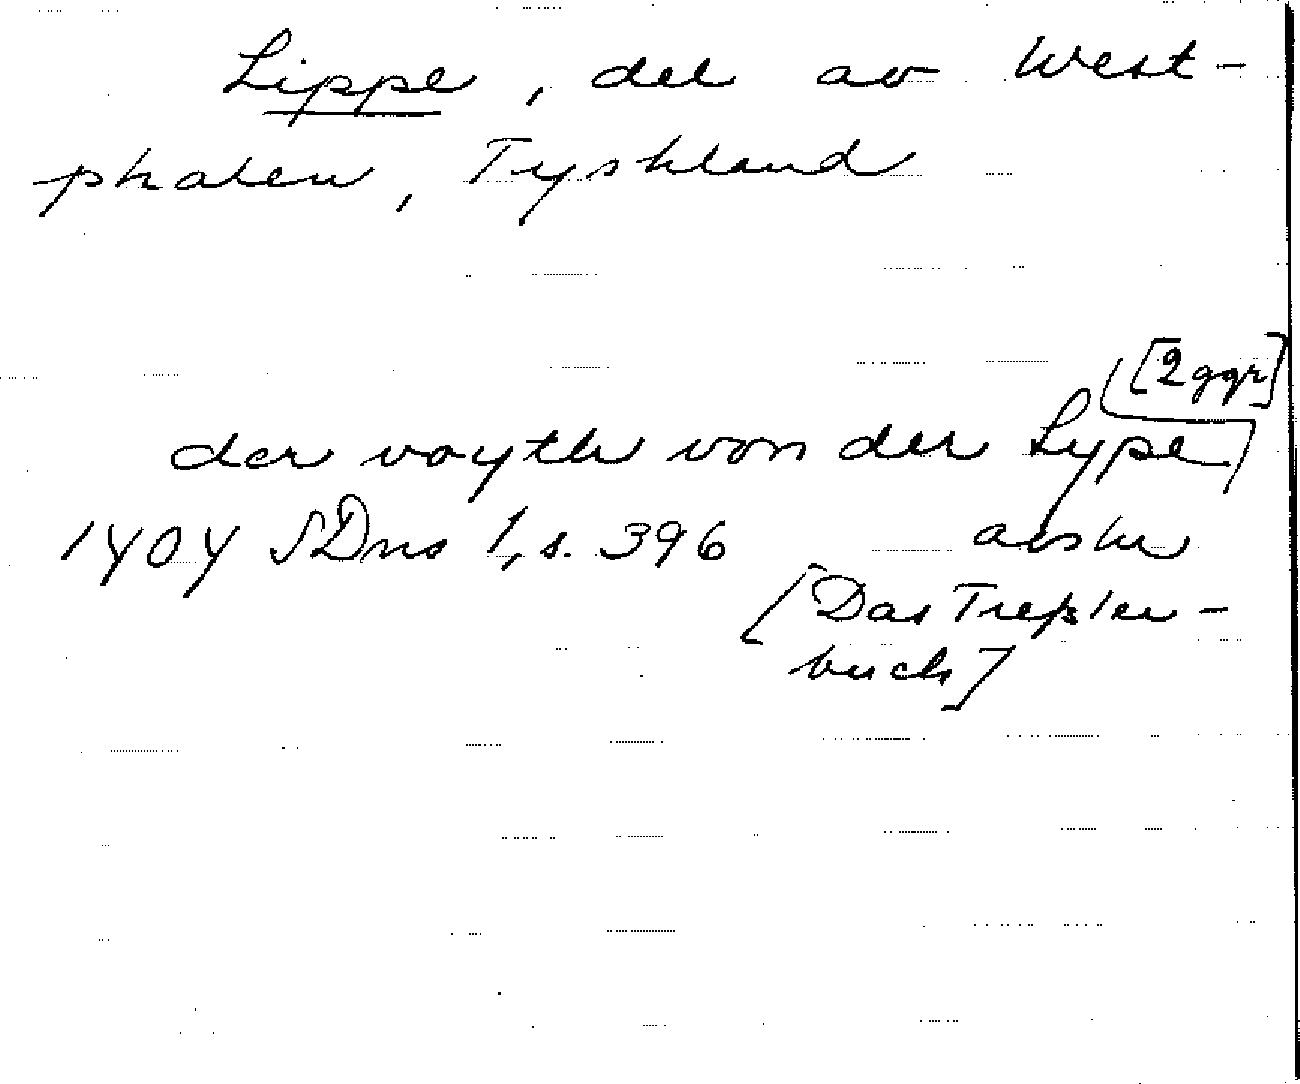 Lippe, del av West-
phalen, Tyskland
[2 ggr]
der voyth von der Lype
1404 SDns 1, s. 396 avskr
[Das Treßler-
buch]